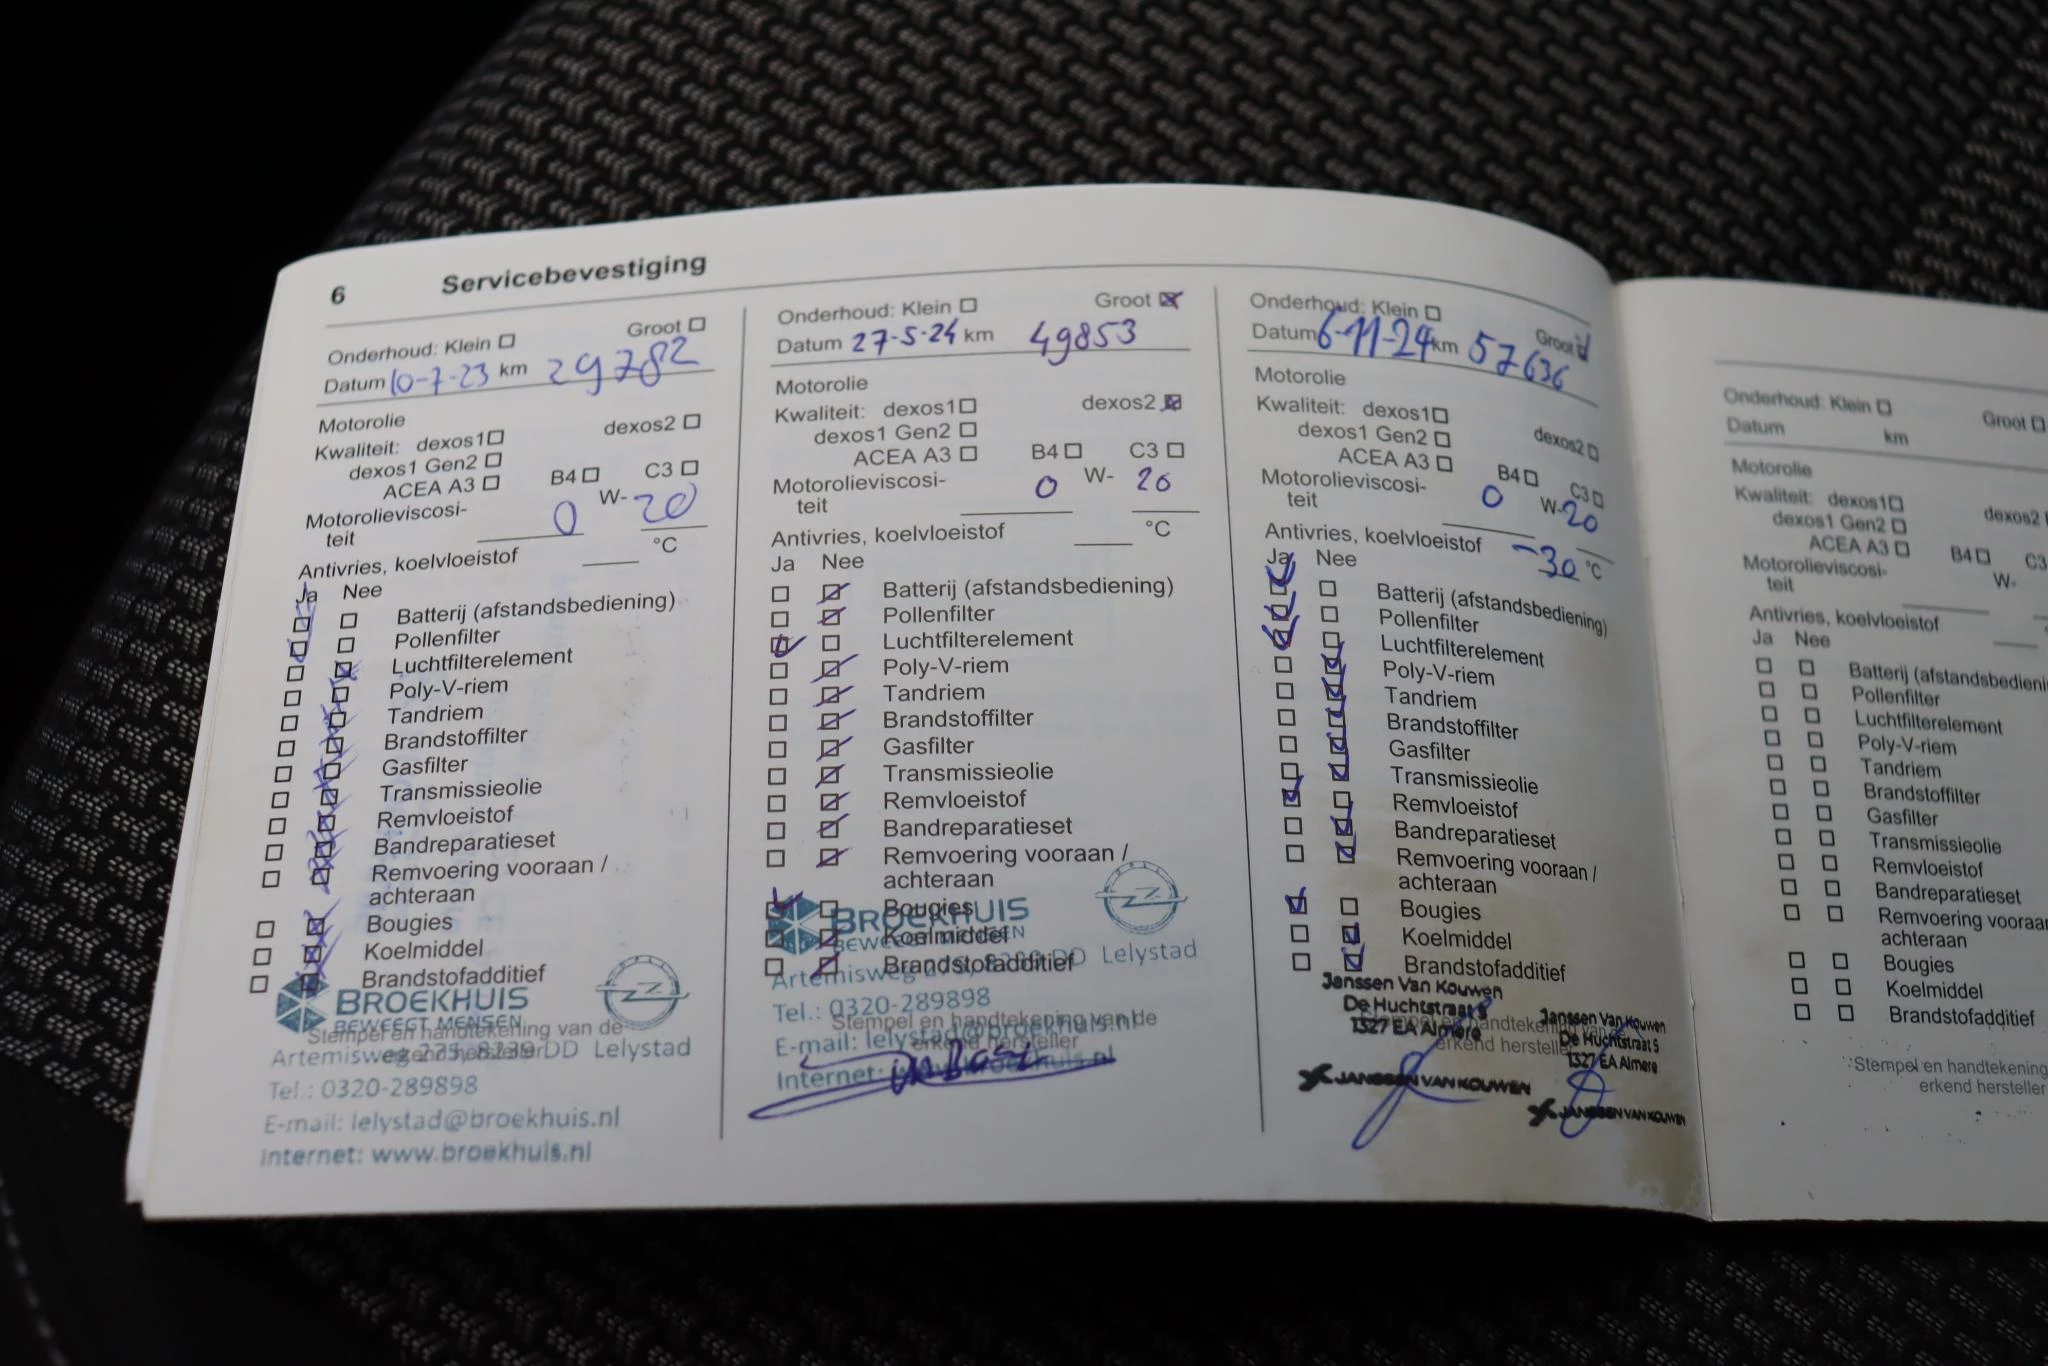 6 Servicebevestiging
Onderhoud: Klein Groot
Datum 10-7-23 km 29782
Motorolie
Kwaliteit: dexos1 dexos2
dexos1 Gen2
ACEA A3 B4 C3
Motorolieviscosi-
teit 0 W-20
Antivries, koelvloeistof °C
Ja Nee
Batterij (afstandsbediening)
Pollenfilter
Luchtfilterelement
Poly-V-riem
Tandriem
Brandstoffilter
Gasfilter
Transmissieolie
Remvloeistof
Bandreparatieset
Remvoering vooraan /
achteraan
Bougies
Koelmiddel
Brandstofadditief
BROEKHUIS
BEWEEGT MENSEN
Stempel en handtekening van de
erkend hersteller
Artemisweg 275, 8239 DD Lelystad
Tel.: 0320-289898
E-mail: lelystad@broekhuis.nl
Internet: www.broekhuis.nl
Onderhoud: Klein Groot
Datum 27-5-24 km 49853
Motorolie
Kwaliteit: dexos1 dexos2
dexos1 Gen2
ACEA A3 B4 C3
Motorolieviscosi-
teit 0 W- 20
Antivries, koelvloeistof °C
Ja Nee
Batterij (afstandsbediening)
Pollenfilter
Luchtfilterelement
Poly-V-riem
Tandriem
Brandstoffilter
Gasfilter
Transmissieolie
Remvloeistof
Bandreparatieset
Remvoering vooraan /
achteraan
Bougies
Koelmiddel
Brandstofadditief
BROEKHUIS
BEWEEGT MENSEN
Artemisweg 275, 8239 DD Lelystad
Tel.: 0320-289898
Stempel en handtekening van de
erkend hersteller
E-mail: lelystad@broekhuis.nl
Internet: www.broekhuis.nl
Onderhoud: Klein Groot
Datum 6-11-24 km 57636
Motorolie
Kwaliteit: dexos1 dexos2
dexos1 Gen2
ACEA A3 B4 C3
Motorolieviscosi-
teit 0 W-20
Antivries, koelvloeistof -30 °C
Ja Nee
Batterij (afstandsbediening)
Pollenfilter
Luchtfilterelement
Poly-V-riem
Tandriem
Brandstoffilter
Gasfilter
Transmissieolie
Remvloeistof
Bandreparatieset
Remvoering vooraan /
achteraan
Bougies
Koelmiddel
Brandstofadditief
Janssen Van Kouwen
De Huchtstraat 5
1327 EA Almere
JANSSEN VAN KOUWEN
Stempel en handtekening van de
erkend hersteller
Janssen Van Kouwen
De Huchtstraat 5
1327 EA Almere
JANSSEN VAN KOUWEN
Onderhoud: Klein Groot
Datum km
Motorolie
Kwaliteit: dexos1 dexos2
dexos1 Gen2
ACEA A3 B4 C3
Motorolieviscosi-
teit W-
Antivries, koelvloeistof
Ja Nee
Batterij (afstandsbedieni
Pollenfilter
Luchtfilterelement
Poly-V-riem
Tandriem
Brandstoffilter
Gasfilter
Transmissieolie
Remvloeistof
Bandreparatieset
Remvoering vooraa
achteraan
Bougies
Koelmiddel
Brandstofadditief
Stempel en handtekening
erkend hersteller